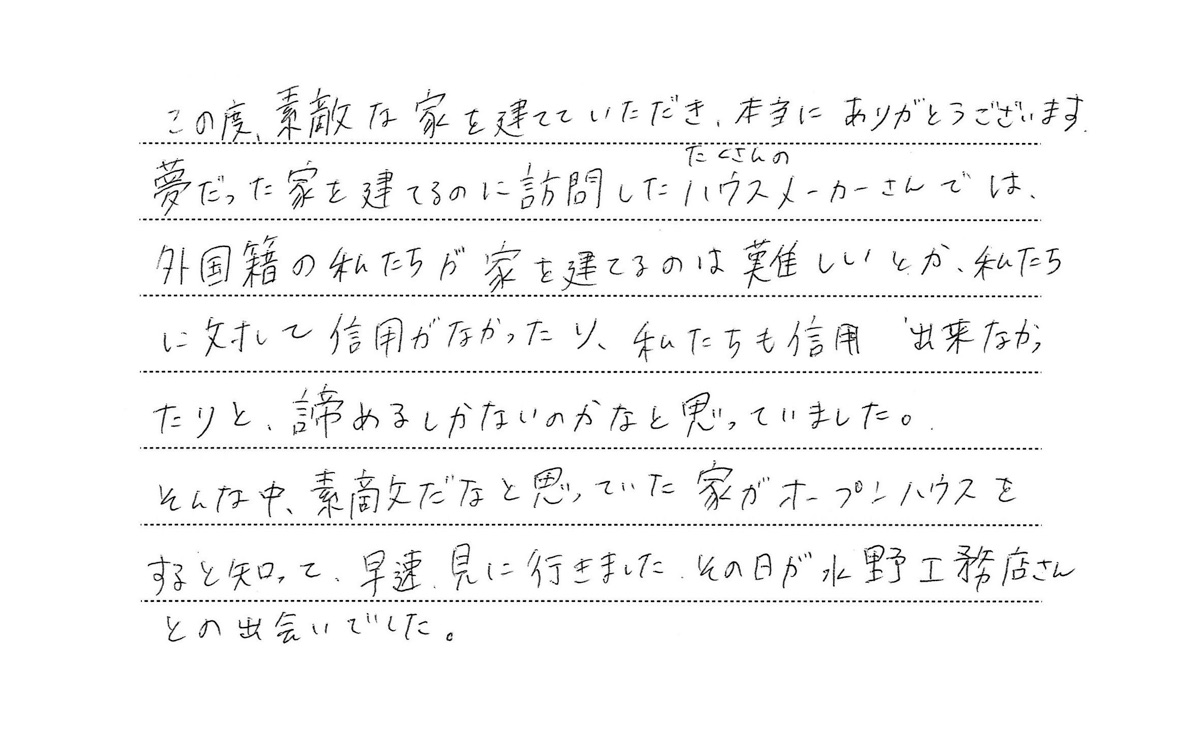 この度、素敵な家を建てていただき、本当にありがとうございます。
たくさんの
夢だった家を建てるのに訪問したハウスメーカーさんでは、
外国籍の私たちが家を建てるのは難しいとか、私たち
に対して信用がなかったり、私たちも信用出来なかっ
たりと、諦めるしかないのかなと思っていました。
そんな中、素敵だなと思っていた家がオープンハウスを
すると知って、早速、見に行きました。その日が水野工務店さん
との出会いでした。